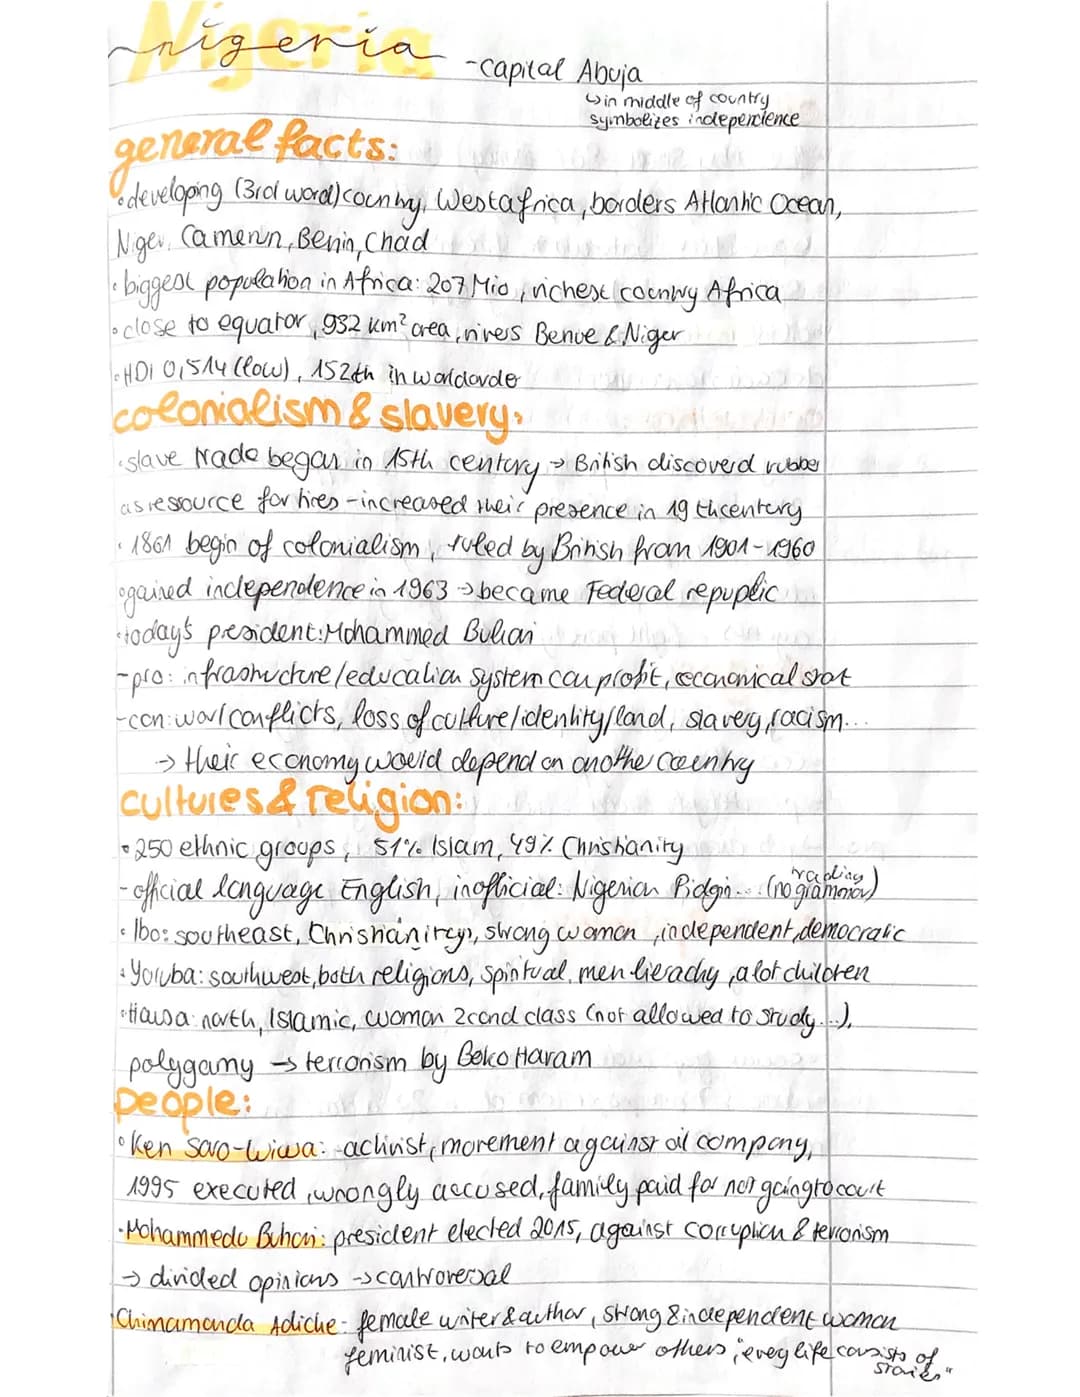 Nigeria
nigeria
-capital Abuja
↳in middle of country
symbolizes indepencience
general facts:
•developing (3rd word) country, Westafrica, borders Atlantic Ocean,
Niger, Camerun, Benin, Chad
• biggest population in Africa: 207 Mio, richest country Africa
• close to equator, 932 km² area, rivers Benue & Niger
• HDI 0,514 (low), 152th in worldorder
colonialism & slavery:
• slave trade began in 15th century → British discoverd rubber
as ressource for tires - increased their presence in 19 thcentury
• 1861 begin of colonialism, ruled by British from 1901-1960
•gained independence in 1963 → became Federal repuplic
•today's president: Mohammed Buhari
-pro: infrastructure/education system can profit, economical
-con: war/conflicts, loss of culture/identity/land, slavery, racism...
→ their economy would depend on another country
cultures & religion:
• 250 ethnic groups, 51% Islam, 49% Christianity
- official language English, inofficial: Nigerian Pidgin... (no grammar)
• Ibo: southeast, Christianity, strong woman, independent, democratic
• Yoruba: southwest, both religions, spiritual, men hierachy, a lot children
•Hausa: north, Islamic, woman 2cond class (not allowed to study...),
polygamy → terrorism by Boko Haram
people:
• Ken Saro-Wiwa: -activist, movement against oil company,
1995 executed, wrongly accused, family paid for not going to court
•Mohammedu Buhari: president elected 2015, against corruption & terrorism
→ divided opinions → controversal
Chimamanda Adiche - female writer & author, strong & independent woman
feminist, wants to empower others, "every life consists of
stories"